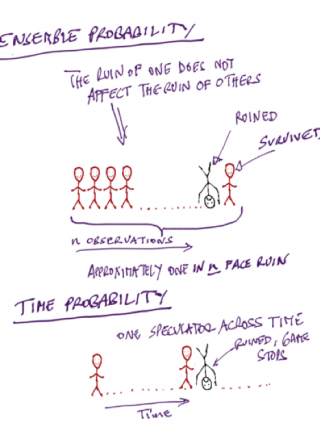 ENSEMBLE PROBABILITY
THE RUIN OF ONE DOES NOT
AFFECT THE RUIN OF OTHERS
RUINED
SURVIVES
n OBSERVATIONS
APPROXIMATELY ONE IN n FACE RUIN
TIME PROBABILITY
ONE SPECULATOR ACROSS TIME
RUINED, GAME
STOPS
Time